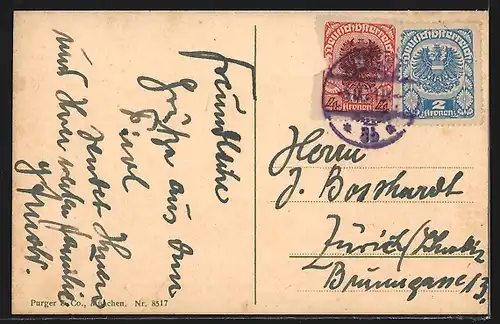 Freundliche
Grüße aus dem
Tirol
sendet Ihnen
und Ihrer werten Familie
Deutschösterreich
Kronen
Deutschösterreich
2
Kronen
Herrn
J. Bosshardt
Zürich / Schweiz
Brunngasse 13.
Purger & Co., München, Nr. 8517